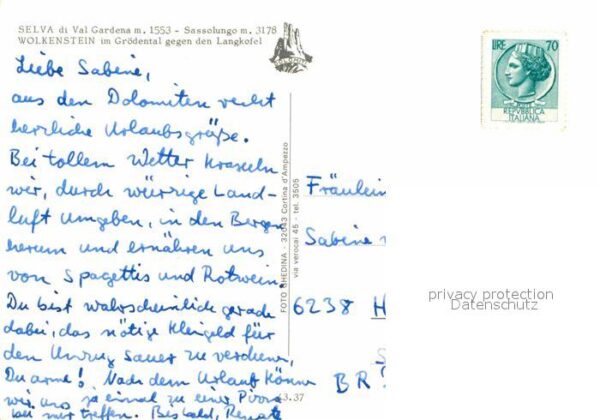 SELVA di Val Gardena m. 1553 - Sassolungo m. 3178
WOLKENSTEIN im Grödental gegen den Langkofel
LIRE 70
REPVBBLICA
ITALIANA
Liebe Sabine,
aus den Dolomiten recht
herzliche Urlaubsgrüße.
Bei tollem Wetter kraxeln
wir, durch würzige Land-
luft umgeben, in den Bergen
herum und ernähren uns
von Spagettis und Rotwein.
Du bist wahrscheinlich gerade
dabei, das nötige Kleingeld für
den Umzug sauer zu verdienen,
Du arme! Nach dem Urlaub können
wir uns ja einmal zu einer Pizza
bei mir treffen. Bis bald, Renate
FOTO GHEDINA - 32043 Cortina d'Ampezzo
via verocai 45 - tel. 3605
3.37
Fräulein
Sabine
6238 H
BR
privacy protection
Datenschutz